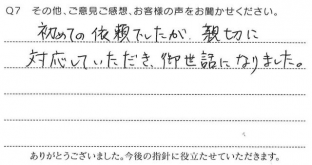 Q7 その他、ご意見ご感想、お客様の声をお聞かせください。
初めての依頼でしたが、親切に
対応していただき、御世話になりました。
ありがとうございました。今後の指針に役立たせていただきます。